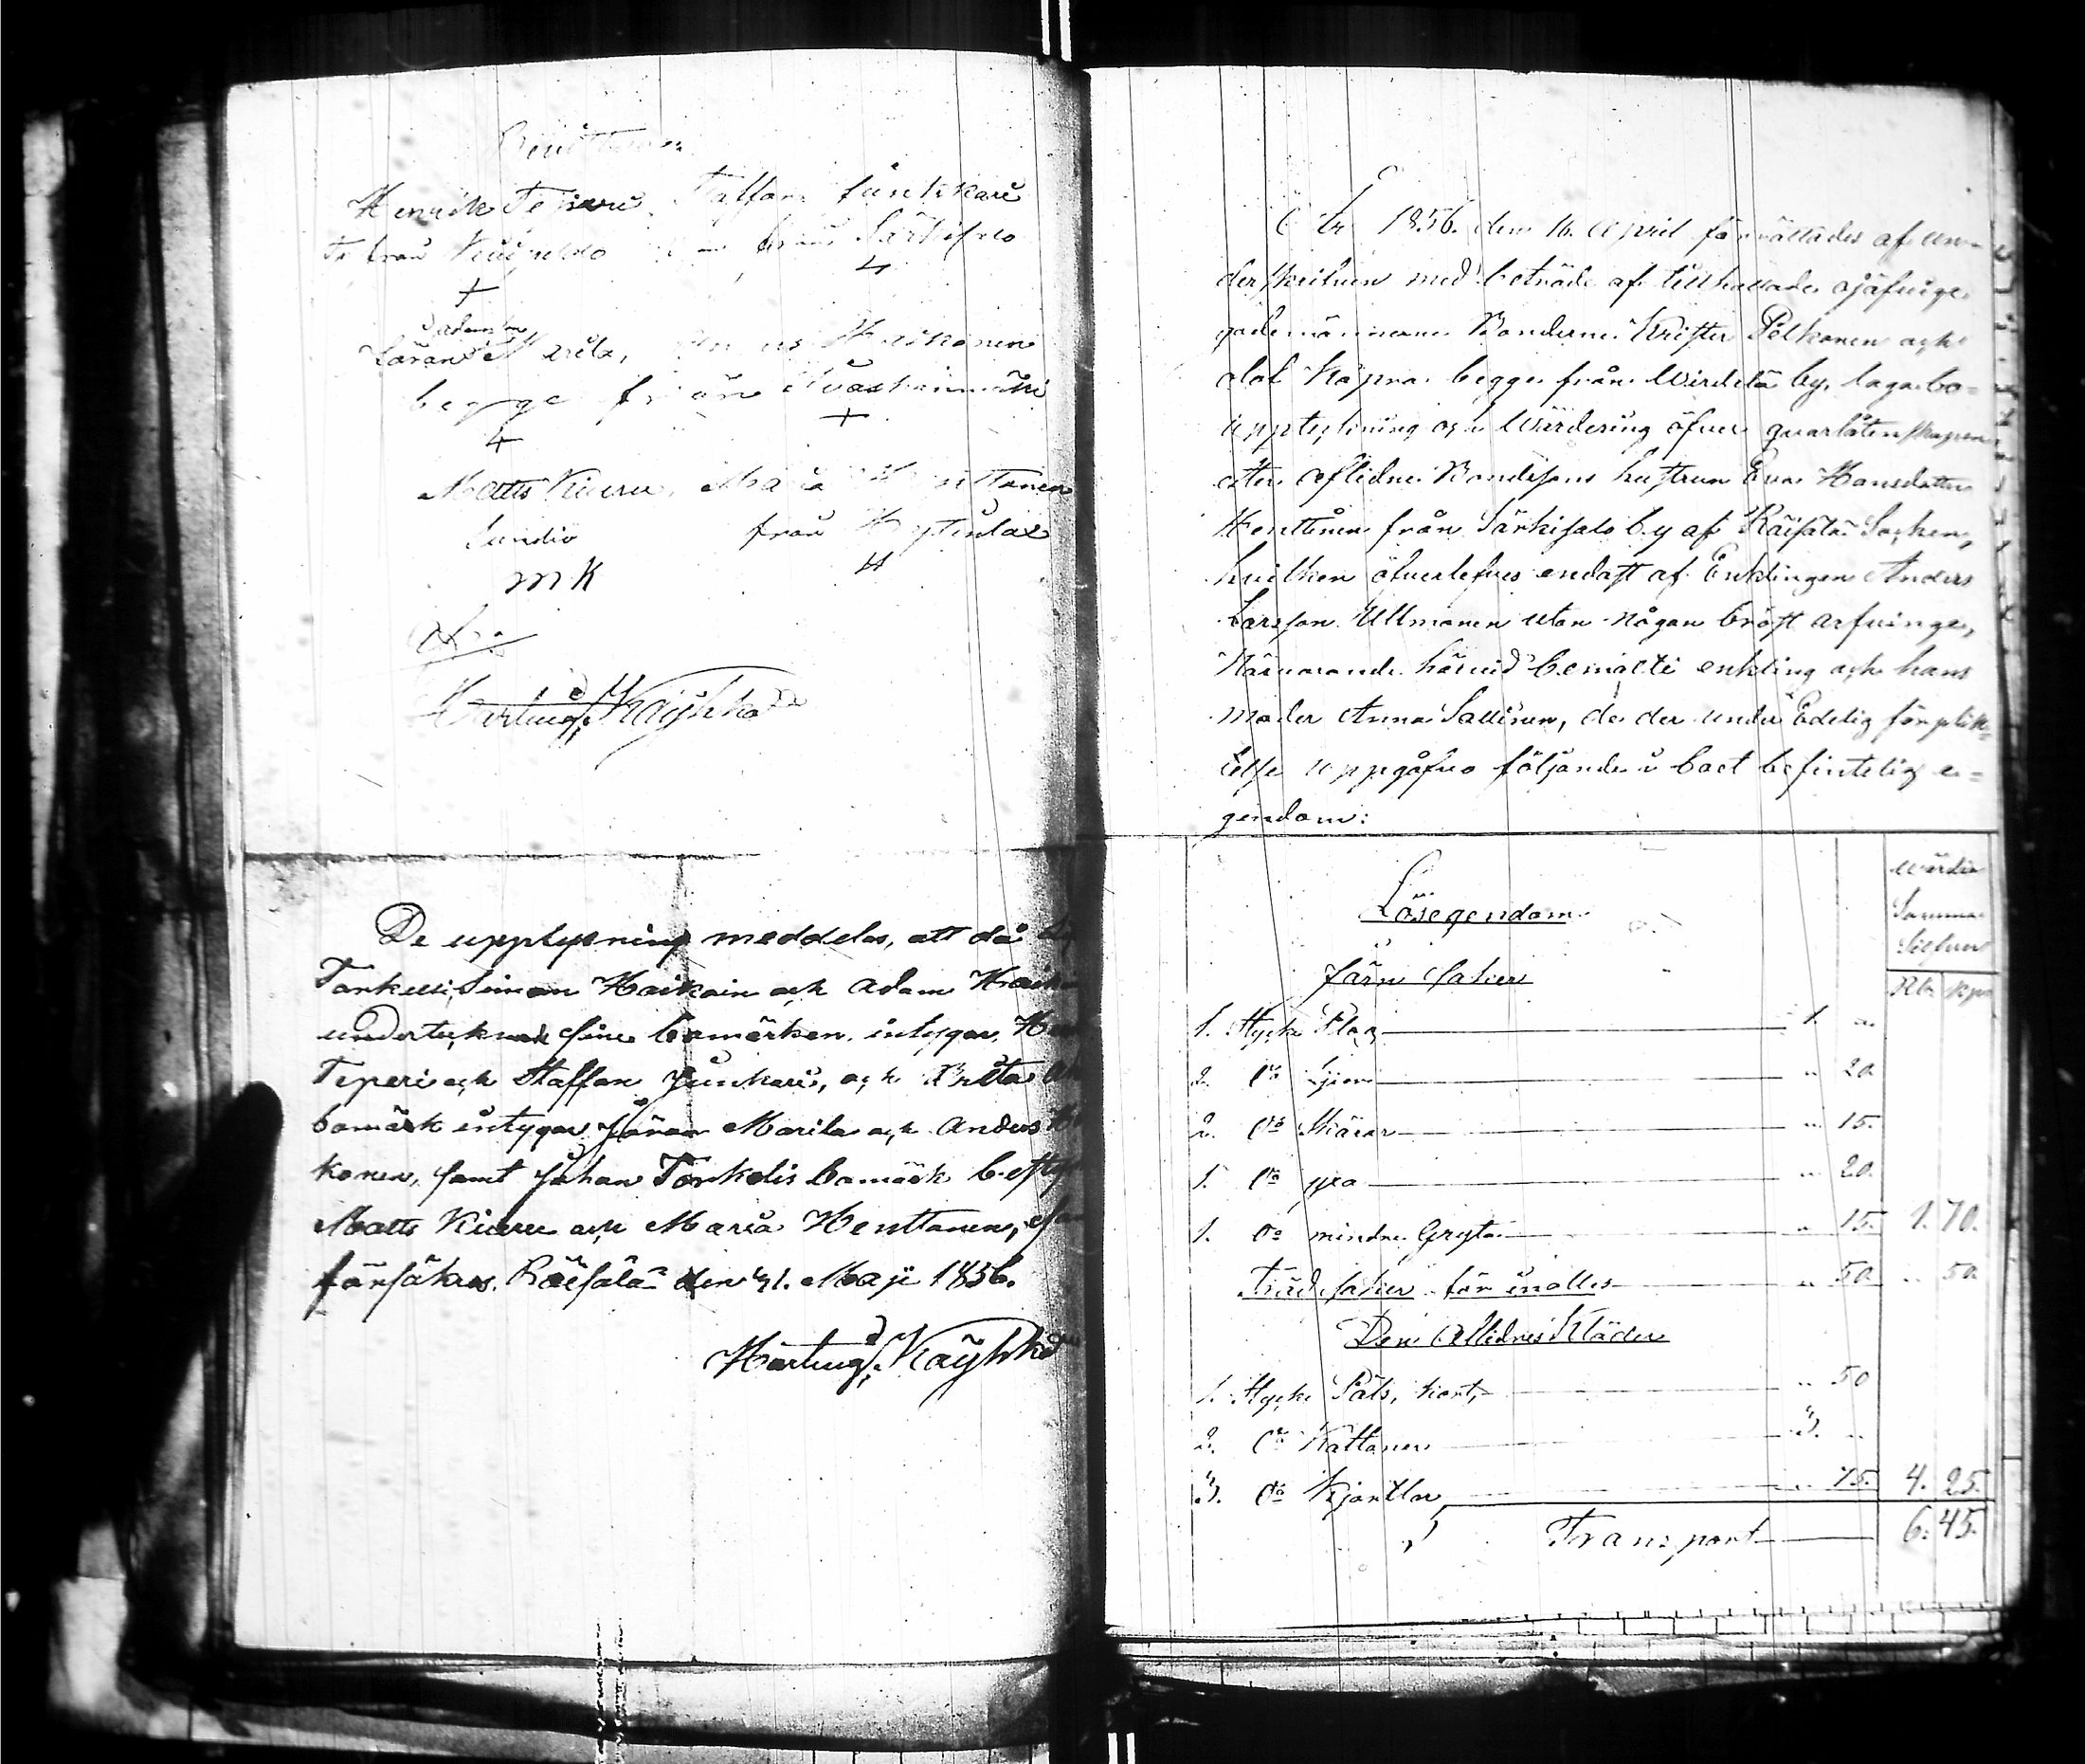 Henrik Teperi, Staffan Junkkari
från från Särkisalo
+ 4
Adamsson
Marila,
begge från
4 +
Matts Kiuru, Maria Henttonen
Sundio från
mK H
Hartvig Käyhkö
De upplysning meddelas, att då
Torkelli, Simon Haikoin och Adam
undertecknat sine bomärken, intygar
Teperi och Staffan Junkari, och Brita
bomärk intygar Jöran Marila och Anders
konen, samt Johan Torkelis bomärk
Matts Kiuru och Maria Henttonen,
försäkras. Räisälä den 31. Maji 1856.
Hartvig Käyhkö
År 1856. den 16. April förrättades af un-
derskrifven med beträde af tillkallade ojäfvige
godemännerne Bönderne Krister Pölkonen och
Olof Kapra begge från Wirdelä by, laga bo-
uppteckning och Wärdering öfver qvarlåtenskapen
efter aflidne Bondesons hustrun Eva Hansdotter
Henttonen från Särkisalo by af Räisälä Socken,
hvilken öfverlefves endast af Enklingen Anders
Larsson Ullmanen utan någon bröst arfvinge,
Närvarande härvid bemälte enkling och hans
moder Anna Sallinen, de der under Edelig förplik-
telse uppgåfvo följande i boet befintelig e-
gendom:
Wärdien
Summa
Silfver
Lösegendom.
Järn saker
Rbr Kpr
1. stycke Plog 1. "
2. do " 20
2. do Skäror " 15.
1. do yxa " 20.
1. do mindre Gryta " 15. 1. 70.
Träd saker för inalles " 50 " 50
Den Aflidnes Kläder
1. stycke Päls, kort, " 50
2. do Kattaner 3. "
3. do Kjortlar " 75. 4. 25.
Transport 6. 45.